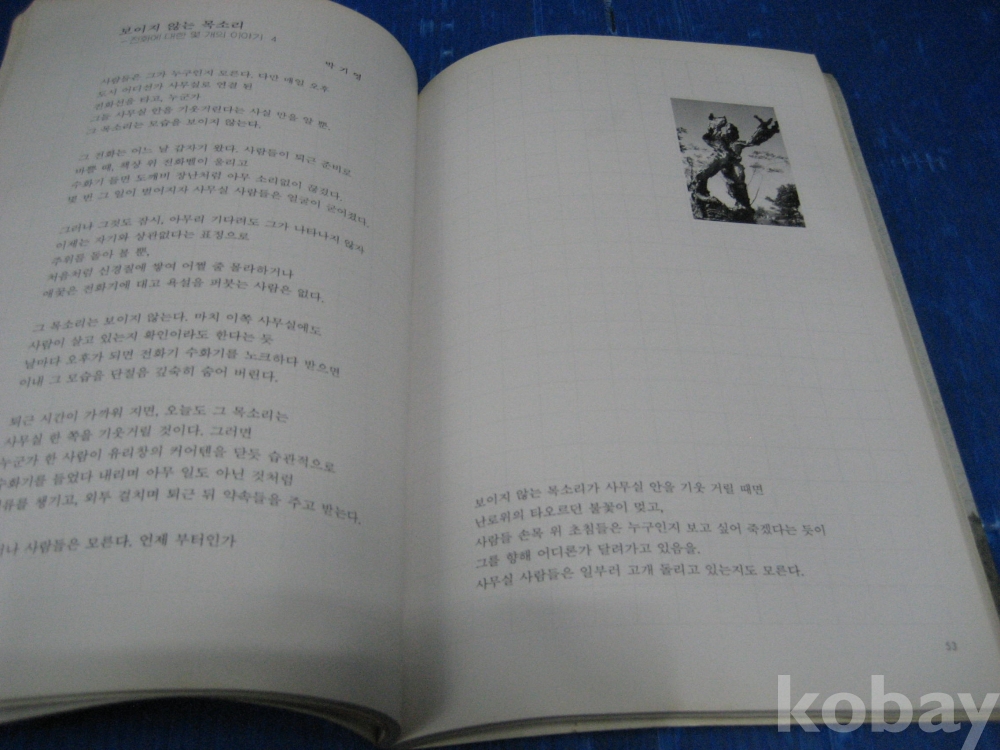 보이지 않는 목소리
-전화에 대한 몇 개의 이야기 4
박기영
사람들은 그가 누구인지 모른다. 다만 매일 오후
도시 어디선가 사무실로 연결 된
전화선을 타고, 누군가
그들 사무실 안을 기웃거린다는 사실 만을 알 뿐.
그 목소리는 모습을 보이지 않는다.
그 전화는 어느 날 갑자기 왔다. 사람들이 퇴근 준비로
바쁠 때, 책상 위 전화벨이 울리고
수화기 들면 도깨비 장난처럼 아무 소리없이 끊겼다.
몇 번 그 일이 벌어지자 사무실 사람들은 얼굴이 굳어졌다.
그러나 그것도 잠시, 아무리 기다려도 그가 나타나지 않자
이제는 자기와 상관없다는 표정으로
주위를 돌아 볼 뿐,
처음처럼 신경질에 쌓여 어쩔 줄 몰라하거나
애꿎은 전화기에 대고 욕설을 퍼붓는 사람은 없다.
그 목소리는 보이지 않는다. 마치 이쪽 사무실에도
사람이 살고 있는지 확인이라도 한다는 듯
날마다 오후가 되면 전화기 수화기를 노크하다 받으면
이내 그 모습을 단절을 깊숙히 숨어 버린다.
퇴근 시간이 가까워 지면, 오늘도 그 목소리는
사무실 한 쪽을 기웃거릴 것이다. 그러면
누군가 한 사람이 유리창의 커어텐을 닫듯 습관적으로
수화기를 들었다 내리며 아무 일도 아닌 것처럼
챙기고, 외투 걸치며 퇴근 뒤 약속들을 주고 받는다.
사람들은 모른다. 언제 부터인가
보이지 않는 목소리가 사무실 안을 기웃 거릴 때면
난로위의 타오르던 불꽃이 멎고,
사람들 손목 위 초침들은 누구인지 보고 싶어 죽겠다는 듯이
그를 향해 어디론가 달려가고 있음을.
사무실 사람들은 일부러 고개 돌리고 있는지도 모른다.
53
kobay